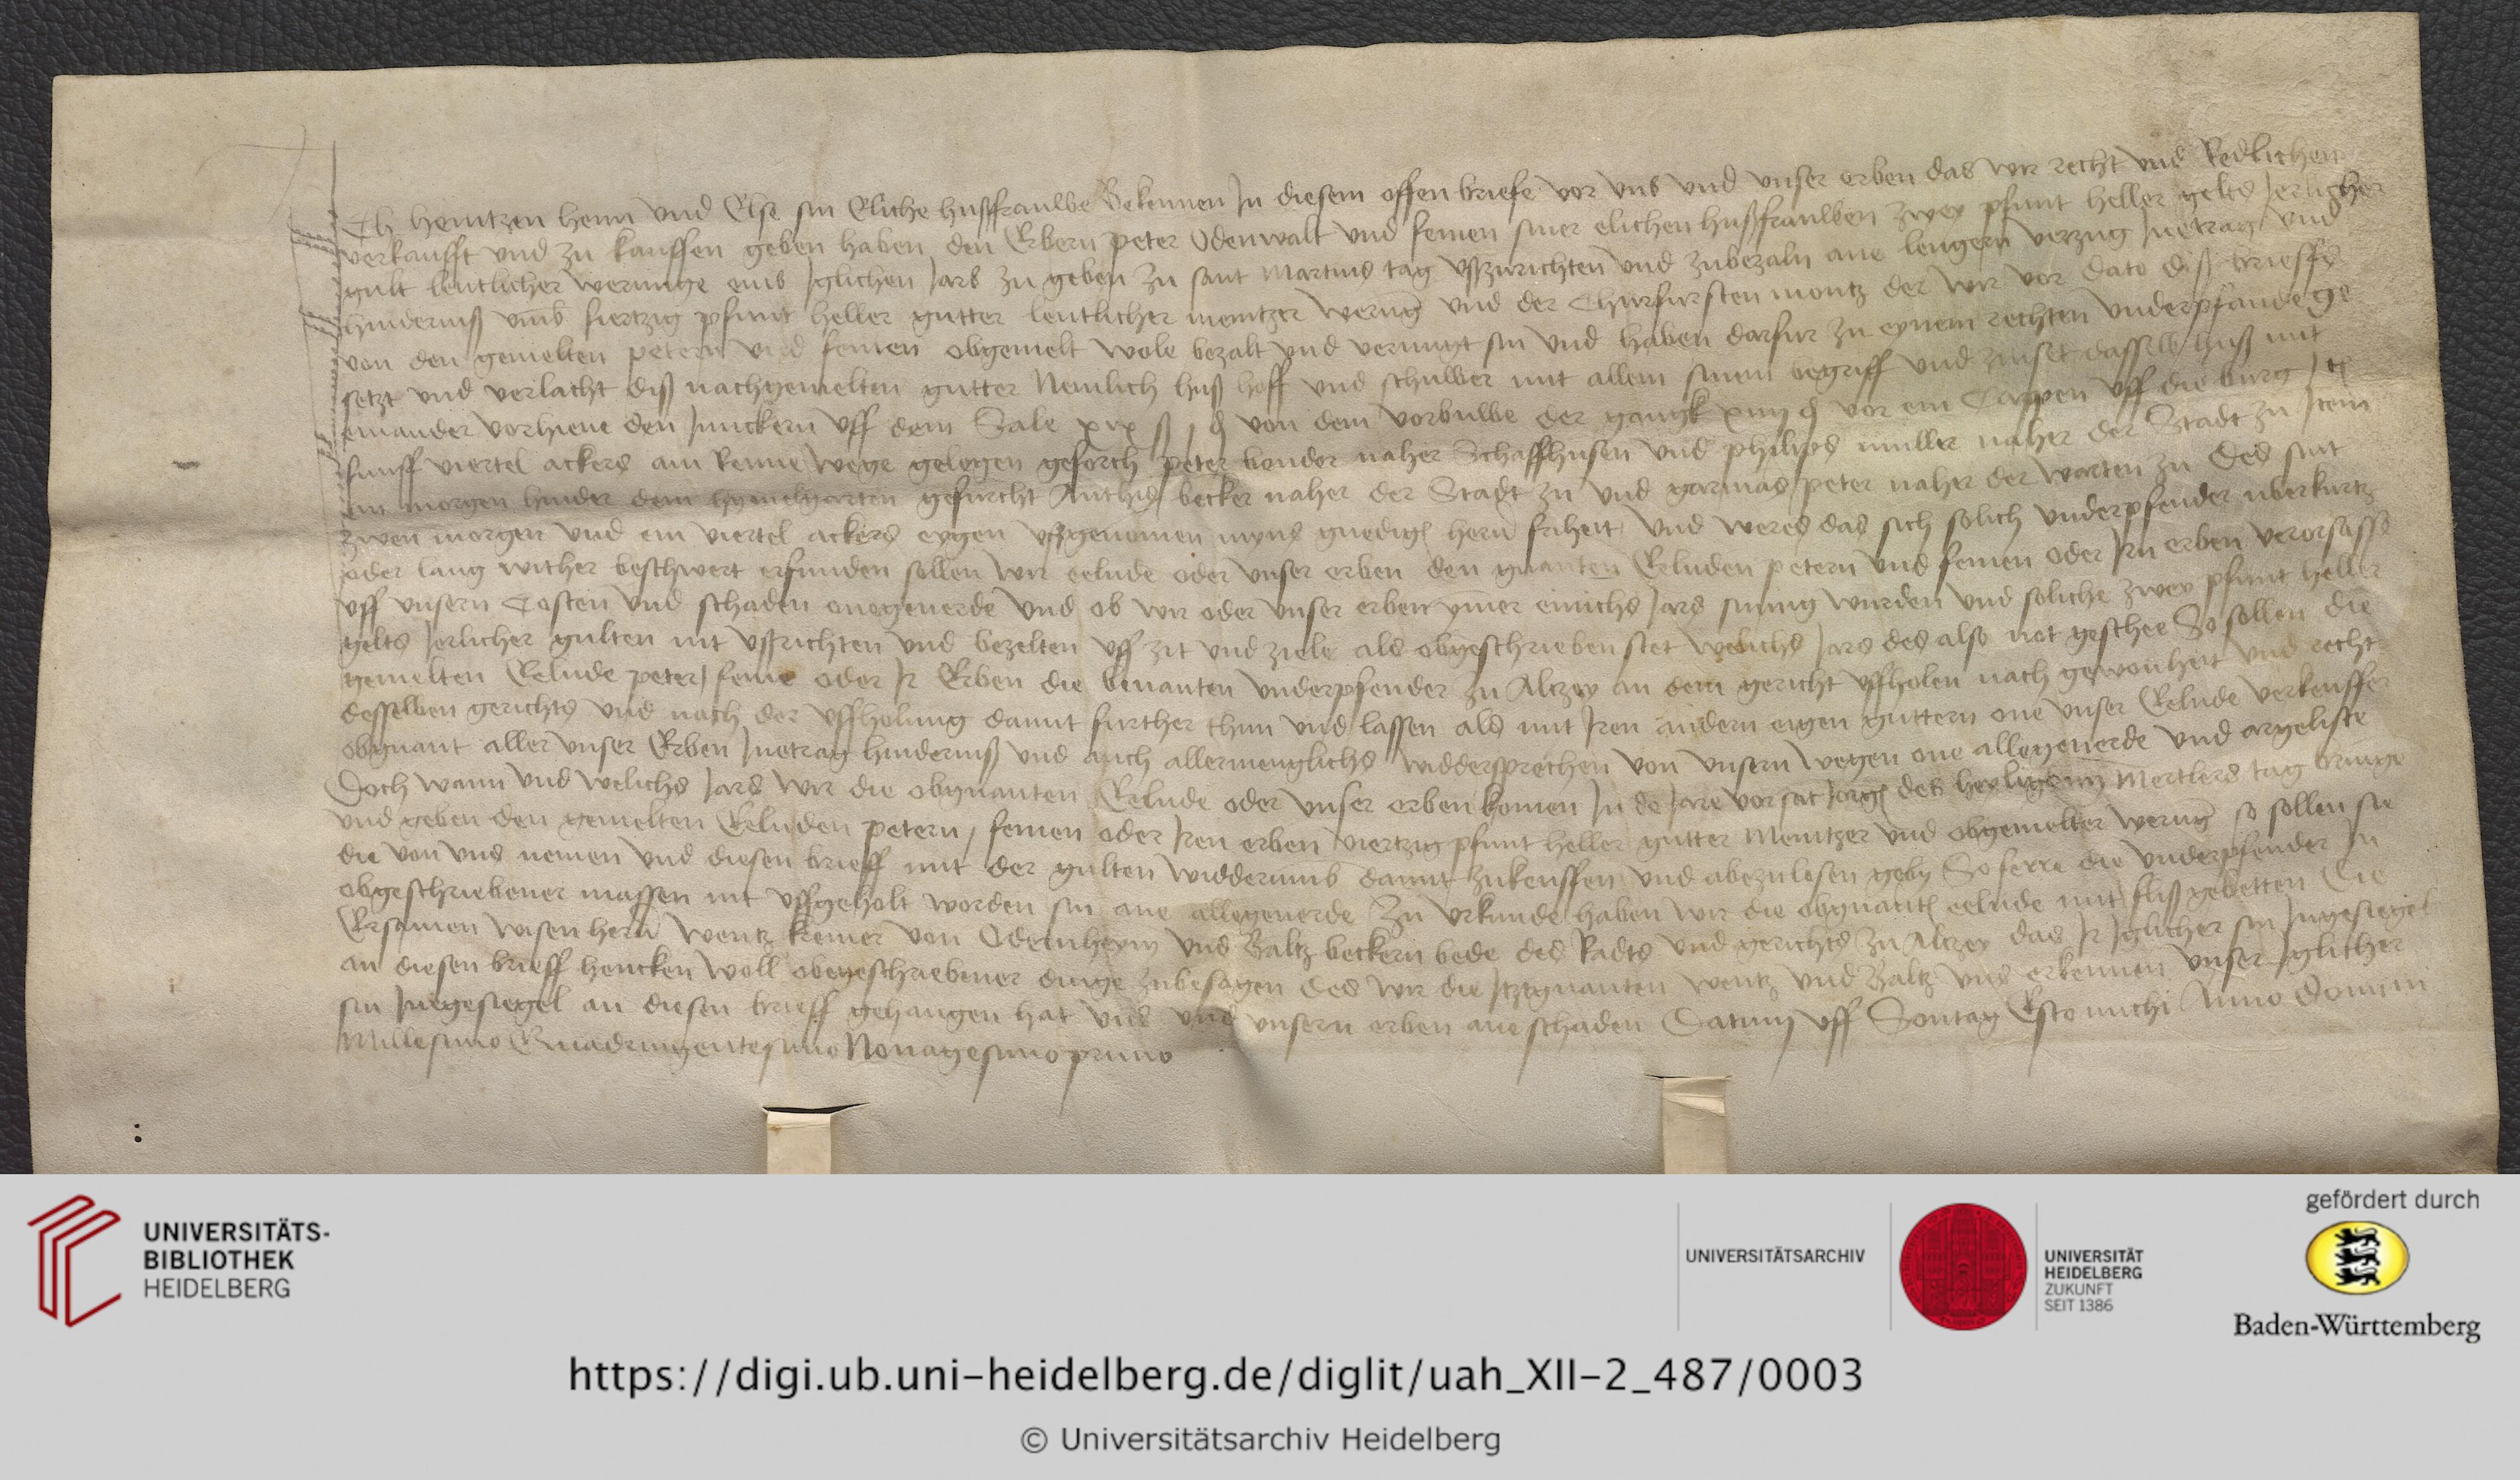 Ich Heintzen Henn und Else sin Eliche hußfrauwe Bekennen In diesem offen briefe vor uns und unser erben das wir recht und Redlichen
verkaufft und zu kauffen geben haben den Erbern peter Odenwalt und feinen siner elichen hußfrauwen zwey pfunt heller gelts Jerlicher
gult lentlicher werunge eins Iglichen Jars zu geben zu sant Martins tag ußzurichten und zubezaln ane lengern verzug Inetrag und
hinderniß umb fiertzig pfunt heller gutter lentlicher mentzer werung und der Churfursten montz der wir vor dato diß brieffs
von den gemelten petern und feinen obgemelt wole bezalt und vernugt sin und haben darfur zu eynem rechten underpfande ge
setzt und verlacht diß nachgemelten gutter Nemlich huß hoff und schuwer mit allem sinem begriff und zinset dasselb huß mit
einander vorhiene den Junckern uff dem Sale xix ß von dem vorbuwe der vor ein Cappen uff die burg Item
funff viertel ackers am Renne wege gelegen geforch peter naher Schaffhusen und philips muller naher der Stadt zu Item
ein morgen hinder dem hymelgarten gefurcht becker naher der Stadt zu und peter naher der warten zu Des sint
zwen morgen und ein viertel ackers eygen ußgenomen myns gnedigen hern friheit Und weres das sich solich underpfender uberkurtz
oder lang wither beschwert erfunden sollen wir eelude oder unser erben den gnanten Eeluden petern und feinen oder Irn erben verorsasse
uff unsern Costen und schaden onegeuerde Und ob wir oder unser erben ymer einichs Jars sumig wurden und soliche zwey pfunt heller
gelts Jerlicher gulten nit ußrichten und bezelten uff zit und ziele als obgeschrieben stet welichs Jars des also not geschee So sollen die
gemelten Eelude peter feine oder Ir Erben die benanten underpfender zu Altzey an dem gericht uffholen nach gewonheit und recht
desselben gerichts und nach der uffholung damit further thun und lassen als mit Iren andern eigen guttern one unser Eelude verkeuffer
obgnant aller unser Erben Inetrag hinderniß und auch allermenglichs widdersprechen von unsern wegen one allegeuerde und argeliste
Doch wann und welichs Jars wir die obgnanten Eelude oder unser erben komen In de Jare vor sant Jorgen des heyligen Mertlers tag bringe
und geben den gemelten Eeluden petern, feinen oder Iren erben viertzig pfunt heller gutter Mentzer und obgemelter werung so sollen sie
die von uns nemen und diesen brieff mit der gulten widderumb damit zukeuffen und abezulosen geben So ferre die underpfender In
obgeschriebener massen nit uffgeholt worden sin ane allegeuerde Zu urkunde haben wir die obgnanten eelude mit fliß gebetten Die
Ersamen wisen hern wentz kremer von Odernheym und Baltz beckern bede des Radts und gerichts zu Altzey das Ir Iglicher sin Ingesiegel
an diesen brieff hencken woll obengeschriebener dinge zubesagen Des wir die Itztgnanten wentz und Baltz uns erkennen unser Iglicher
sin Ingesiegel an diesen brieff gehangen hat uns und unsern erben ane schaden Datum uff Sontag Esto michi Anno Domini
Millesimo Quadringentesimo Nonagesimo primo
UNIVERSITÄTS-
BIBLIOTHEK
HEIDELBERG
UNIVERSITÄTSARCHIV
UNIVERSITÄT
HEIDELBERG
ZUKUNFT
SEIT 1386
gefördert durch
Baden-Württemberg
https://digi.ub.uni-heidelberg.de/diglit/uah_XII-2_487/0003
© Universitätsarchiv Heidelberg